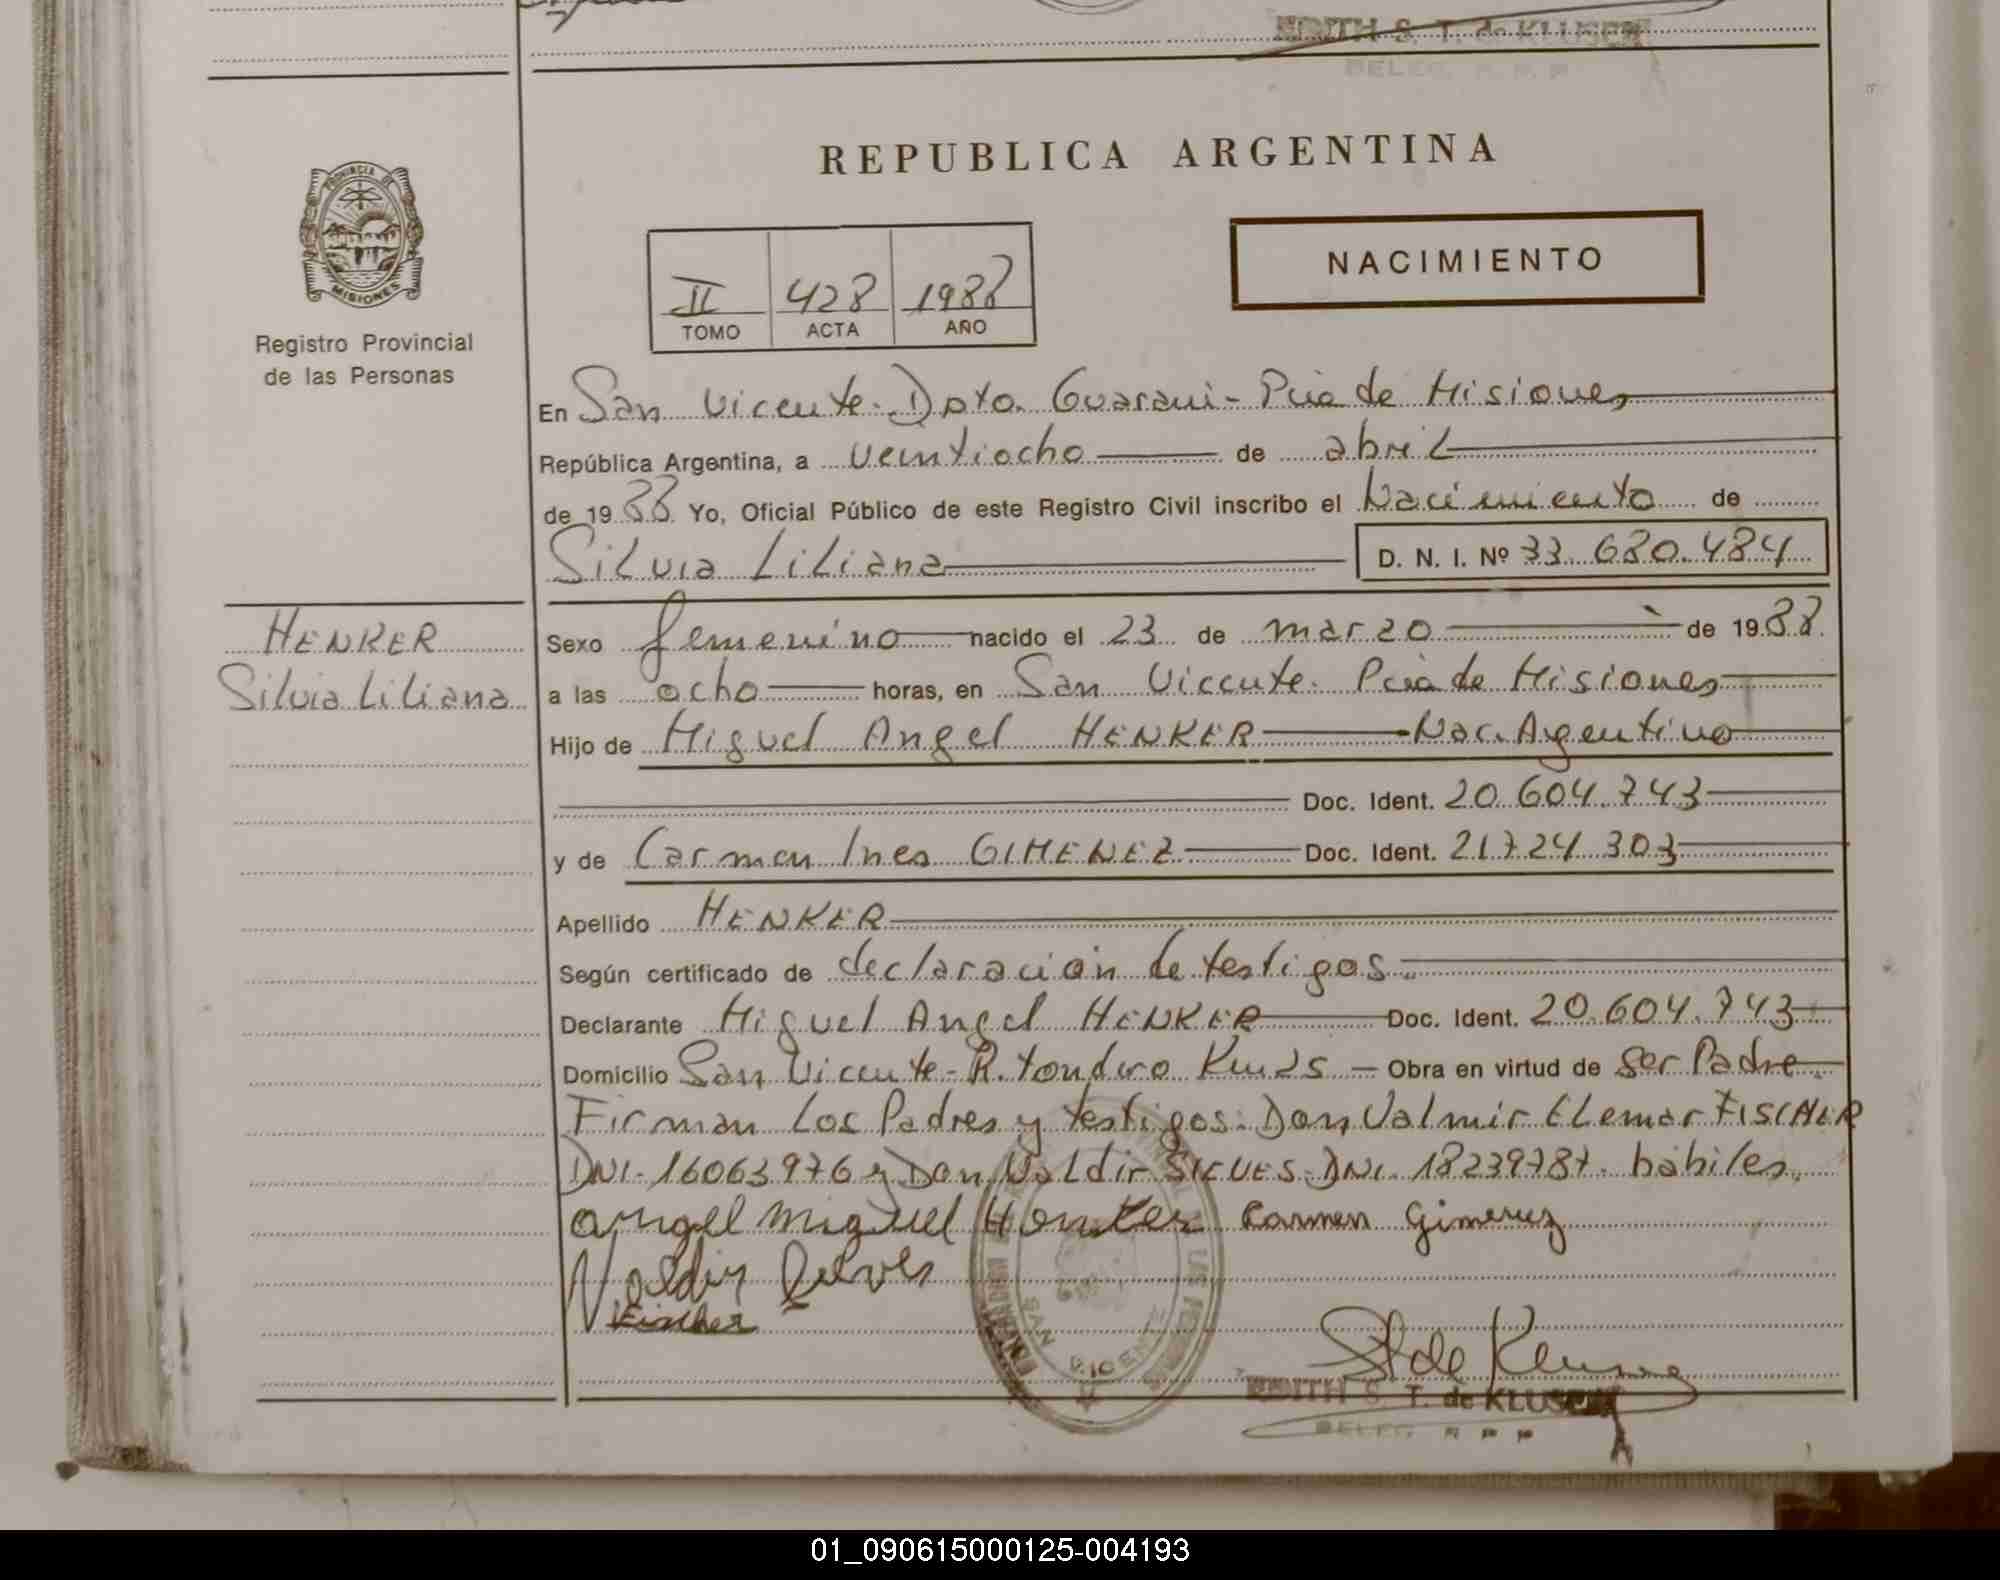 EDITH S. T. de KLUSEN
DELEG. R. P. P.
REPUBLICA ARGENTINA
PROVINCIA DE
MISIONES
Registro Provincial
de las Personas
NACIMIENTO
II 428 1988
TOMO ACTA AÑO
En San Vicente - Dpto. Guaraní - Pcia de Misiones
República Argentina, a veintiocho de abril
de 1988 Yo, Oficial Público de este Registro Civil inscribo el Nacimiento de
Silvia Liliana D. N. I. Nº 33.680.484
HENKER
Silvia Liliana
Sexo femenino nacido el 23 de marzo de 1988
a las ocho horas, en San Vicente - Pcia de Misiones
Hijo de Miguel Angel HENKER Nac. Argentino
Doc. Ident. 20.604.743
y de Carmen Ines GIMENEZ Doc. Ident. 21.724.303
Apellido HENKER
Según certificado de declaración de testigos
Declarante Miguel Angel HENKER Doc. Ident. 20.604.743
Domicilio San Vicente - R. Tondero Km 25 - Obra en virtud de ser Padre.
Firman Los Padres y testigos: Don Valmir Elemar FISCHER
DNI. 16063976 y Don Valdir SIEVES. DNI. 18239787. hábiles.
angel miguel Henker Carmen Gimenez
Valdir Sieves
Fischer
SAN VICENTE
S T de Klusen
EDITH S. T. de KLUSEN
DELEG. R. P. P.
01_090615000125-004193